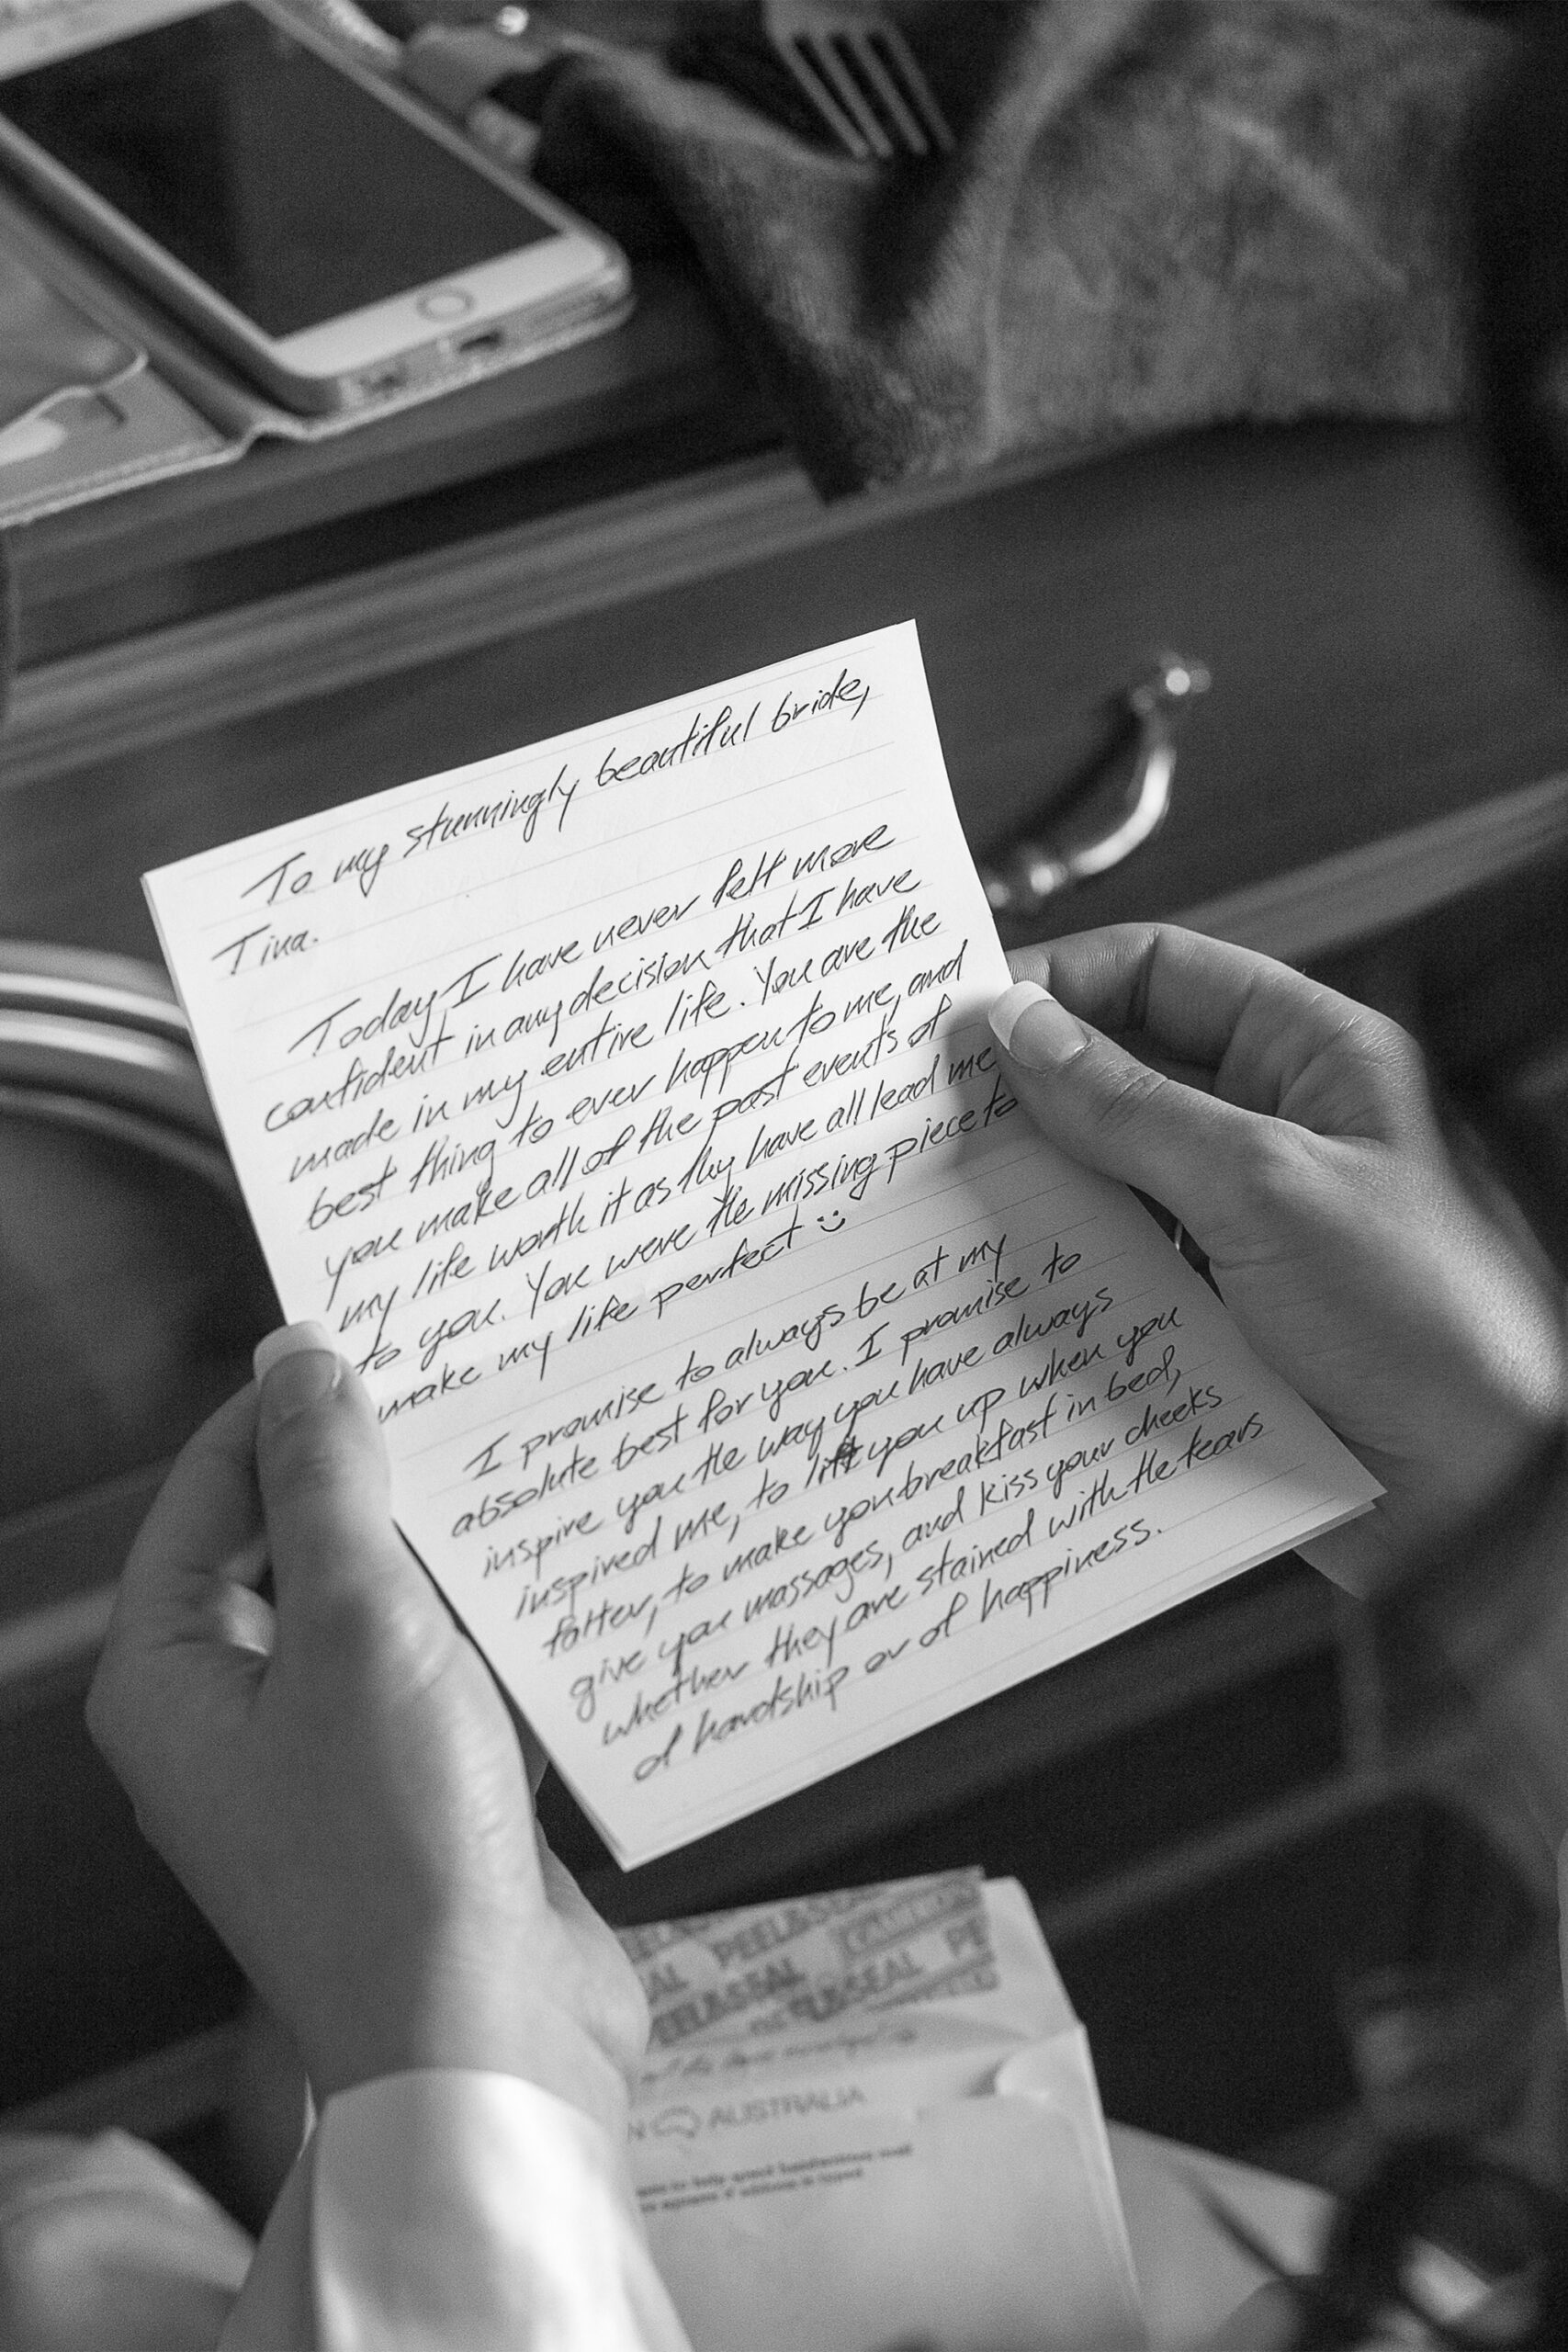 To my stunningly beautiful bride,
Tina.
Today, I have never felt more
confident in any decision that I have
made in my entire life. You are the
best thing to ever happen to me, and
you make all of the past events of
my life worth it as they have all lead me
to you. You were the missing piece to
make my life perfect :)
I promise to always be at my
absolute best for you. I promise to
inspire you the way you have always
inspired me, to lift you up when you
falter, to make you breakfast in bed,
give you massages, and kiss your cheeks
whether they are stained with the tears
of hardship or of happiness.
PEEL&SEAL
PEEL&SEAL PE
PEEL&SEAL
AUSTRALIA